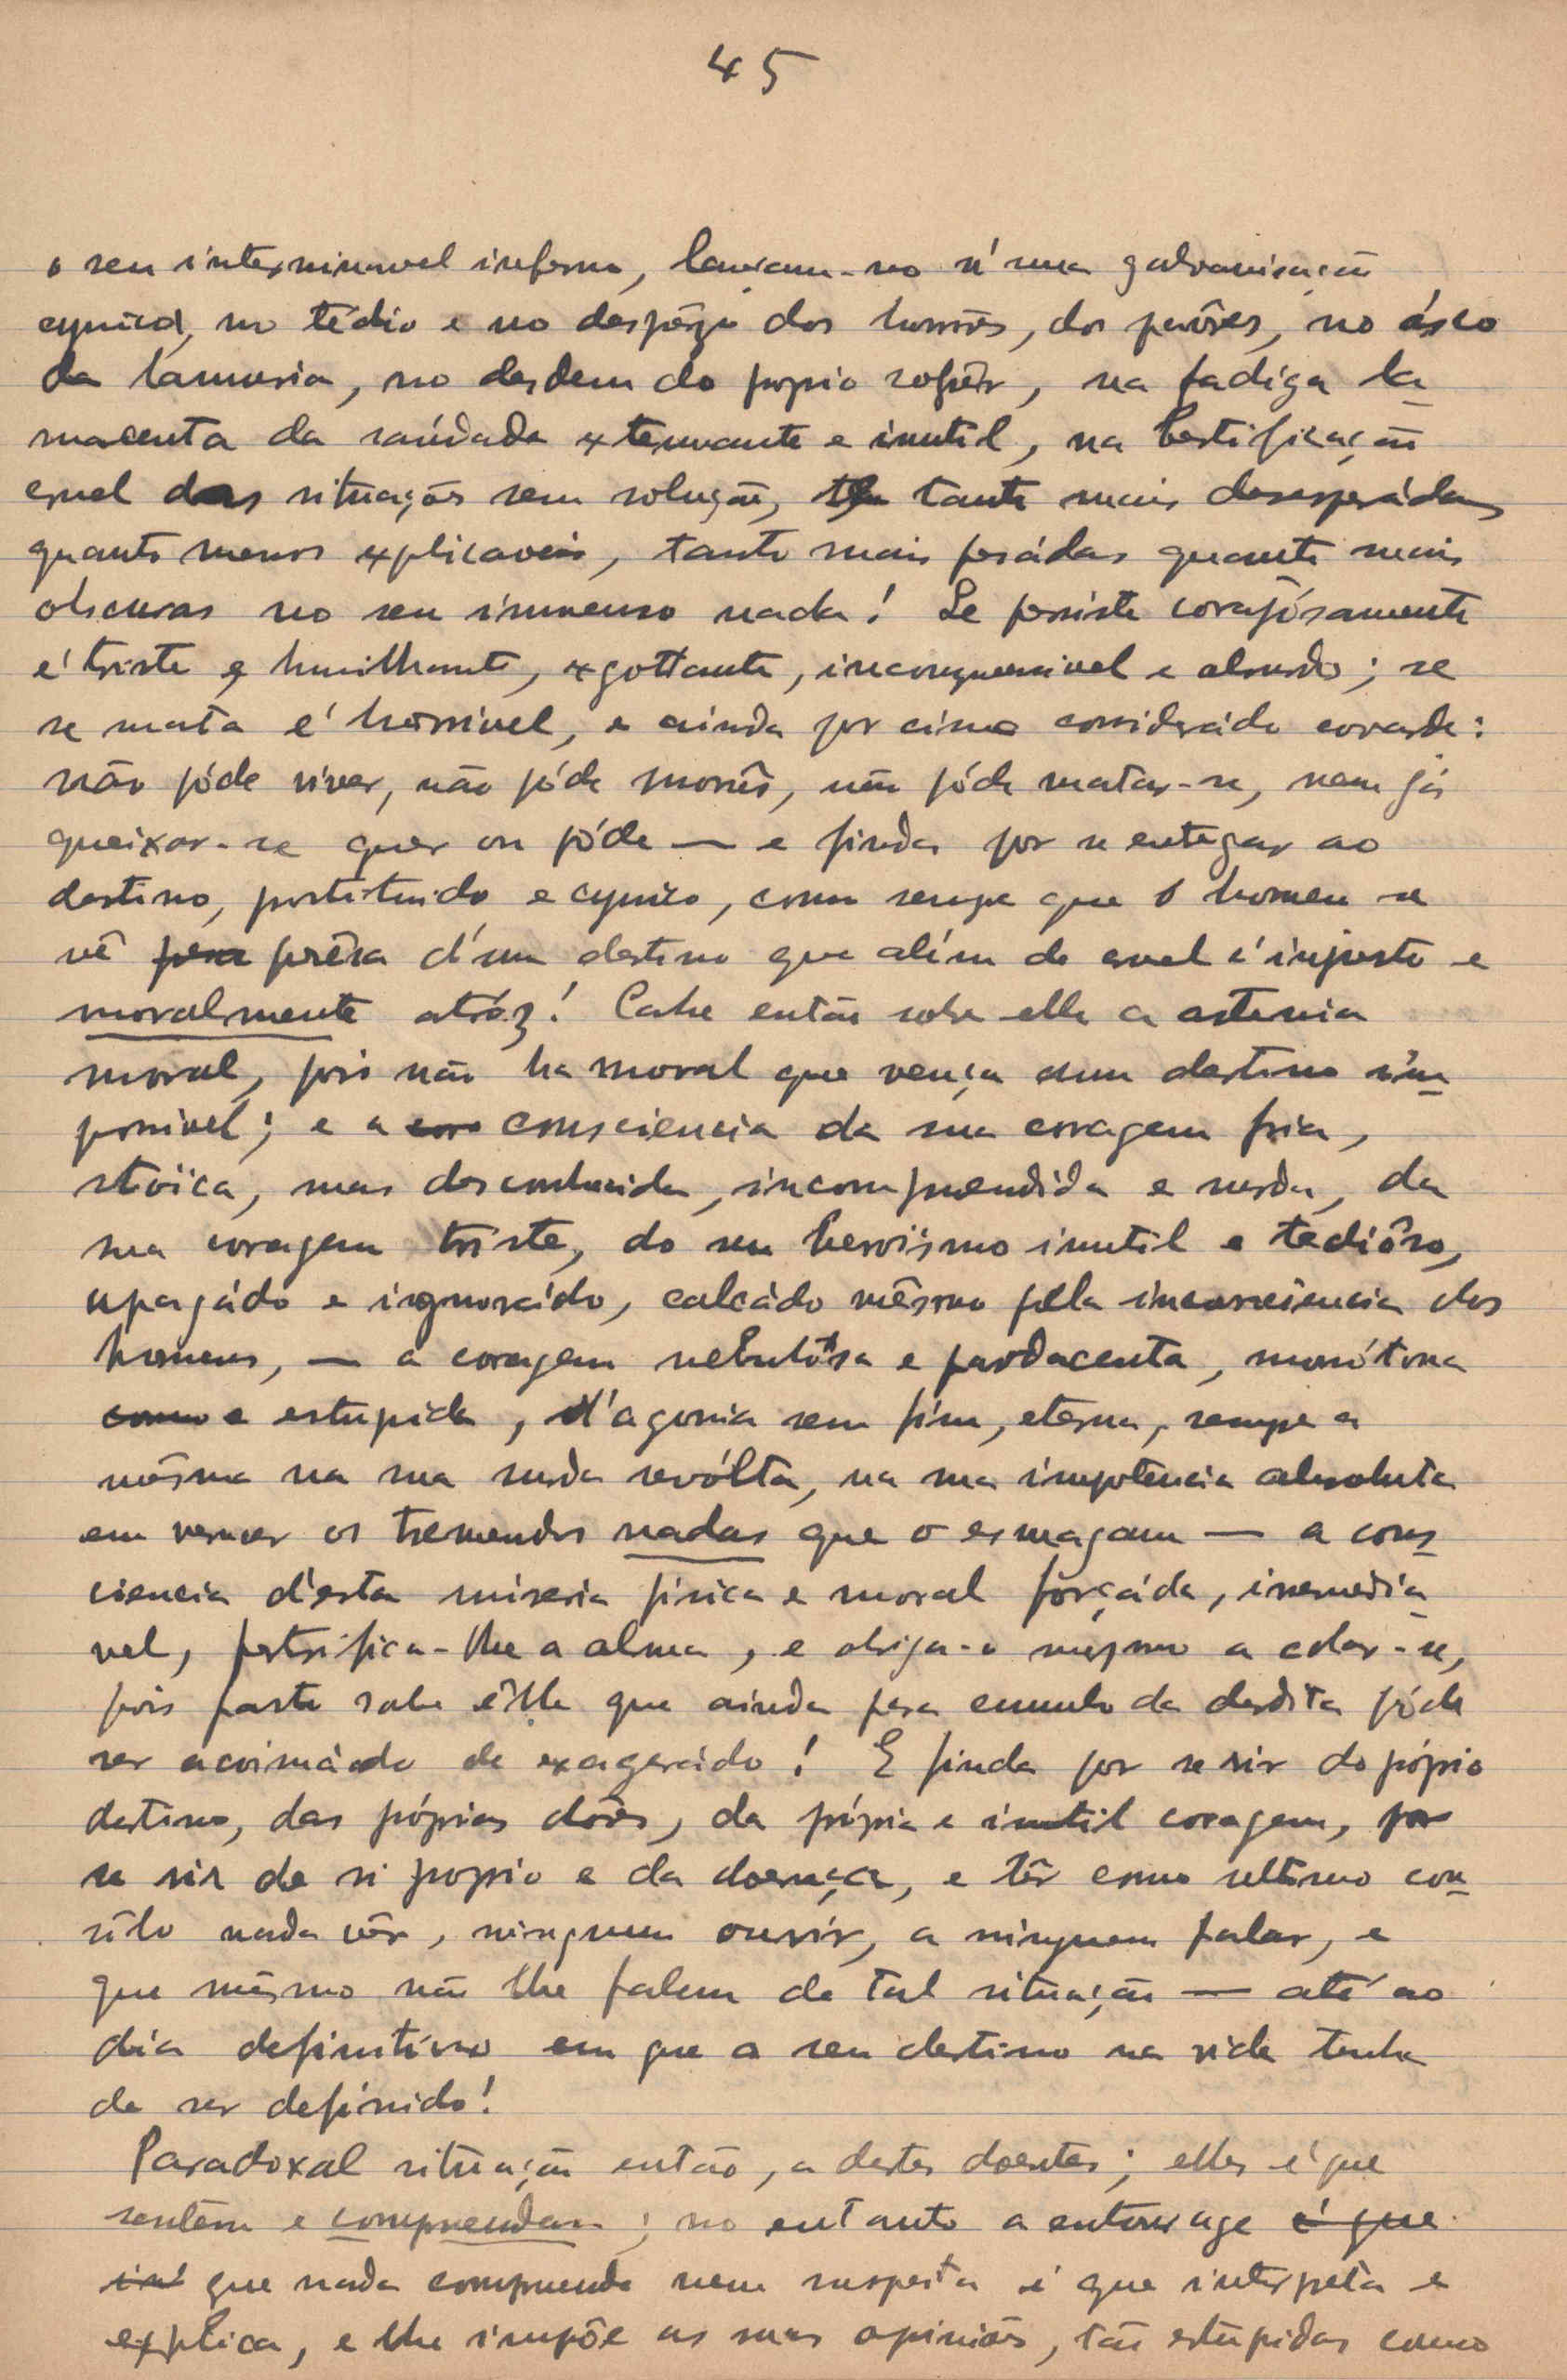 45
o seu interminavel inferno, lancam-no n'uma galvanisação
cynica, no tédio e no desprêzo dos humôs, dos pavôres, no ásco
da lamuria, no desdem do proprio sofrêr, na fadiga la-
macenta da saúdade extenuante e inutil, na bestificação
cruel das situações sem solução, tanto mais desesperádas
quanto menos explicaveis, tanto mais pesádas quanto mais
obscuras no seu immenso nada! Se persiste corajósamente
é triste e humilhante, exgottante, incompreensivel e absurdo; se
se mata é horrivel, e ainda por cima considerádo covarde:
não póde viver, não póde morrêr, não póde matar-se, nem já
queixar-se quer ou póde — e finda por se entregar ao
destino, prostituido e cynico, como sempre que o homem se
vê prêsa d'um destino que além de cruel é injusto e
moralmente atróz! Cahe então sobre elle a astenia
moral, pois não ha moral que vença um destino im-
possivel; e a consciencia da sua coragem fria,
stoïca, mas desconhecida, incomprendida e surda, da
sua coragem triste, do seu heroismo inutil e tediôso,
apagádo e ignorádo, calcádo mêsmo pella inconsciencia dos
homens, — a coragem nebulósa e pardacenta, monótona
e estupida, d'agonia sem fim, eterna, sempre a
mêsma na sua surda revólta, na sua impotencia absoluta
em vencer os tremendos nadas que o esmagam — a cons-
ciencia d'esta miseria fisica e moral forçáda, irremedia-
vel, petrifica-lhe a alma, e obriga-o mesmo a calar-se,
pois farto sabe êlle que ainda pera cumulo da desdita póde
ser acoimádo de exagerádo! E finda por se rir do próprio
destino, das próprias dôres, da própria e inutil coragem, por
se rir de si proprio e da doença, e têr como ultimo con-
sôlo nada vêr, ninguem ouvir, a ninguem falar, e
que mêsmo não lhe falem de tal situação — até ao
dia definitivo em que o seu destino na vida tenha
de ser definido!
Paradoxal situação então, a destes doentes; elles é que
sentem e comprendem; no entanto a entourage é que
que nada comprende nem suspeita é que interpreta e
explica, e lhe impõe as suas opiniões, tão estupidas como